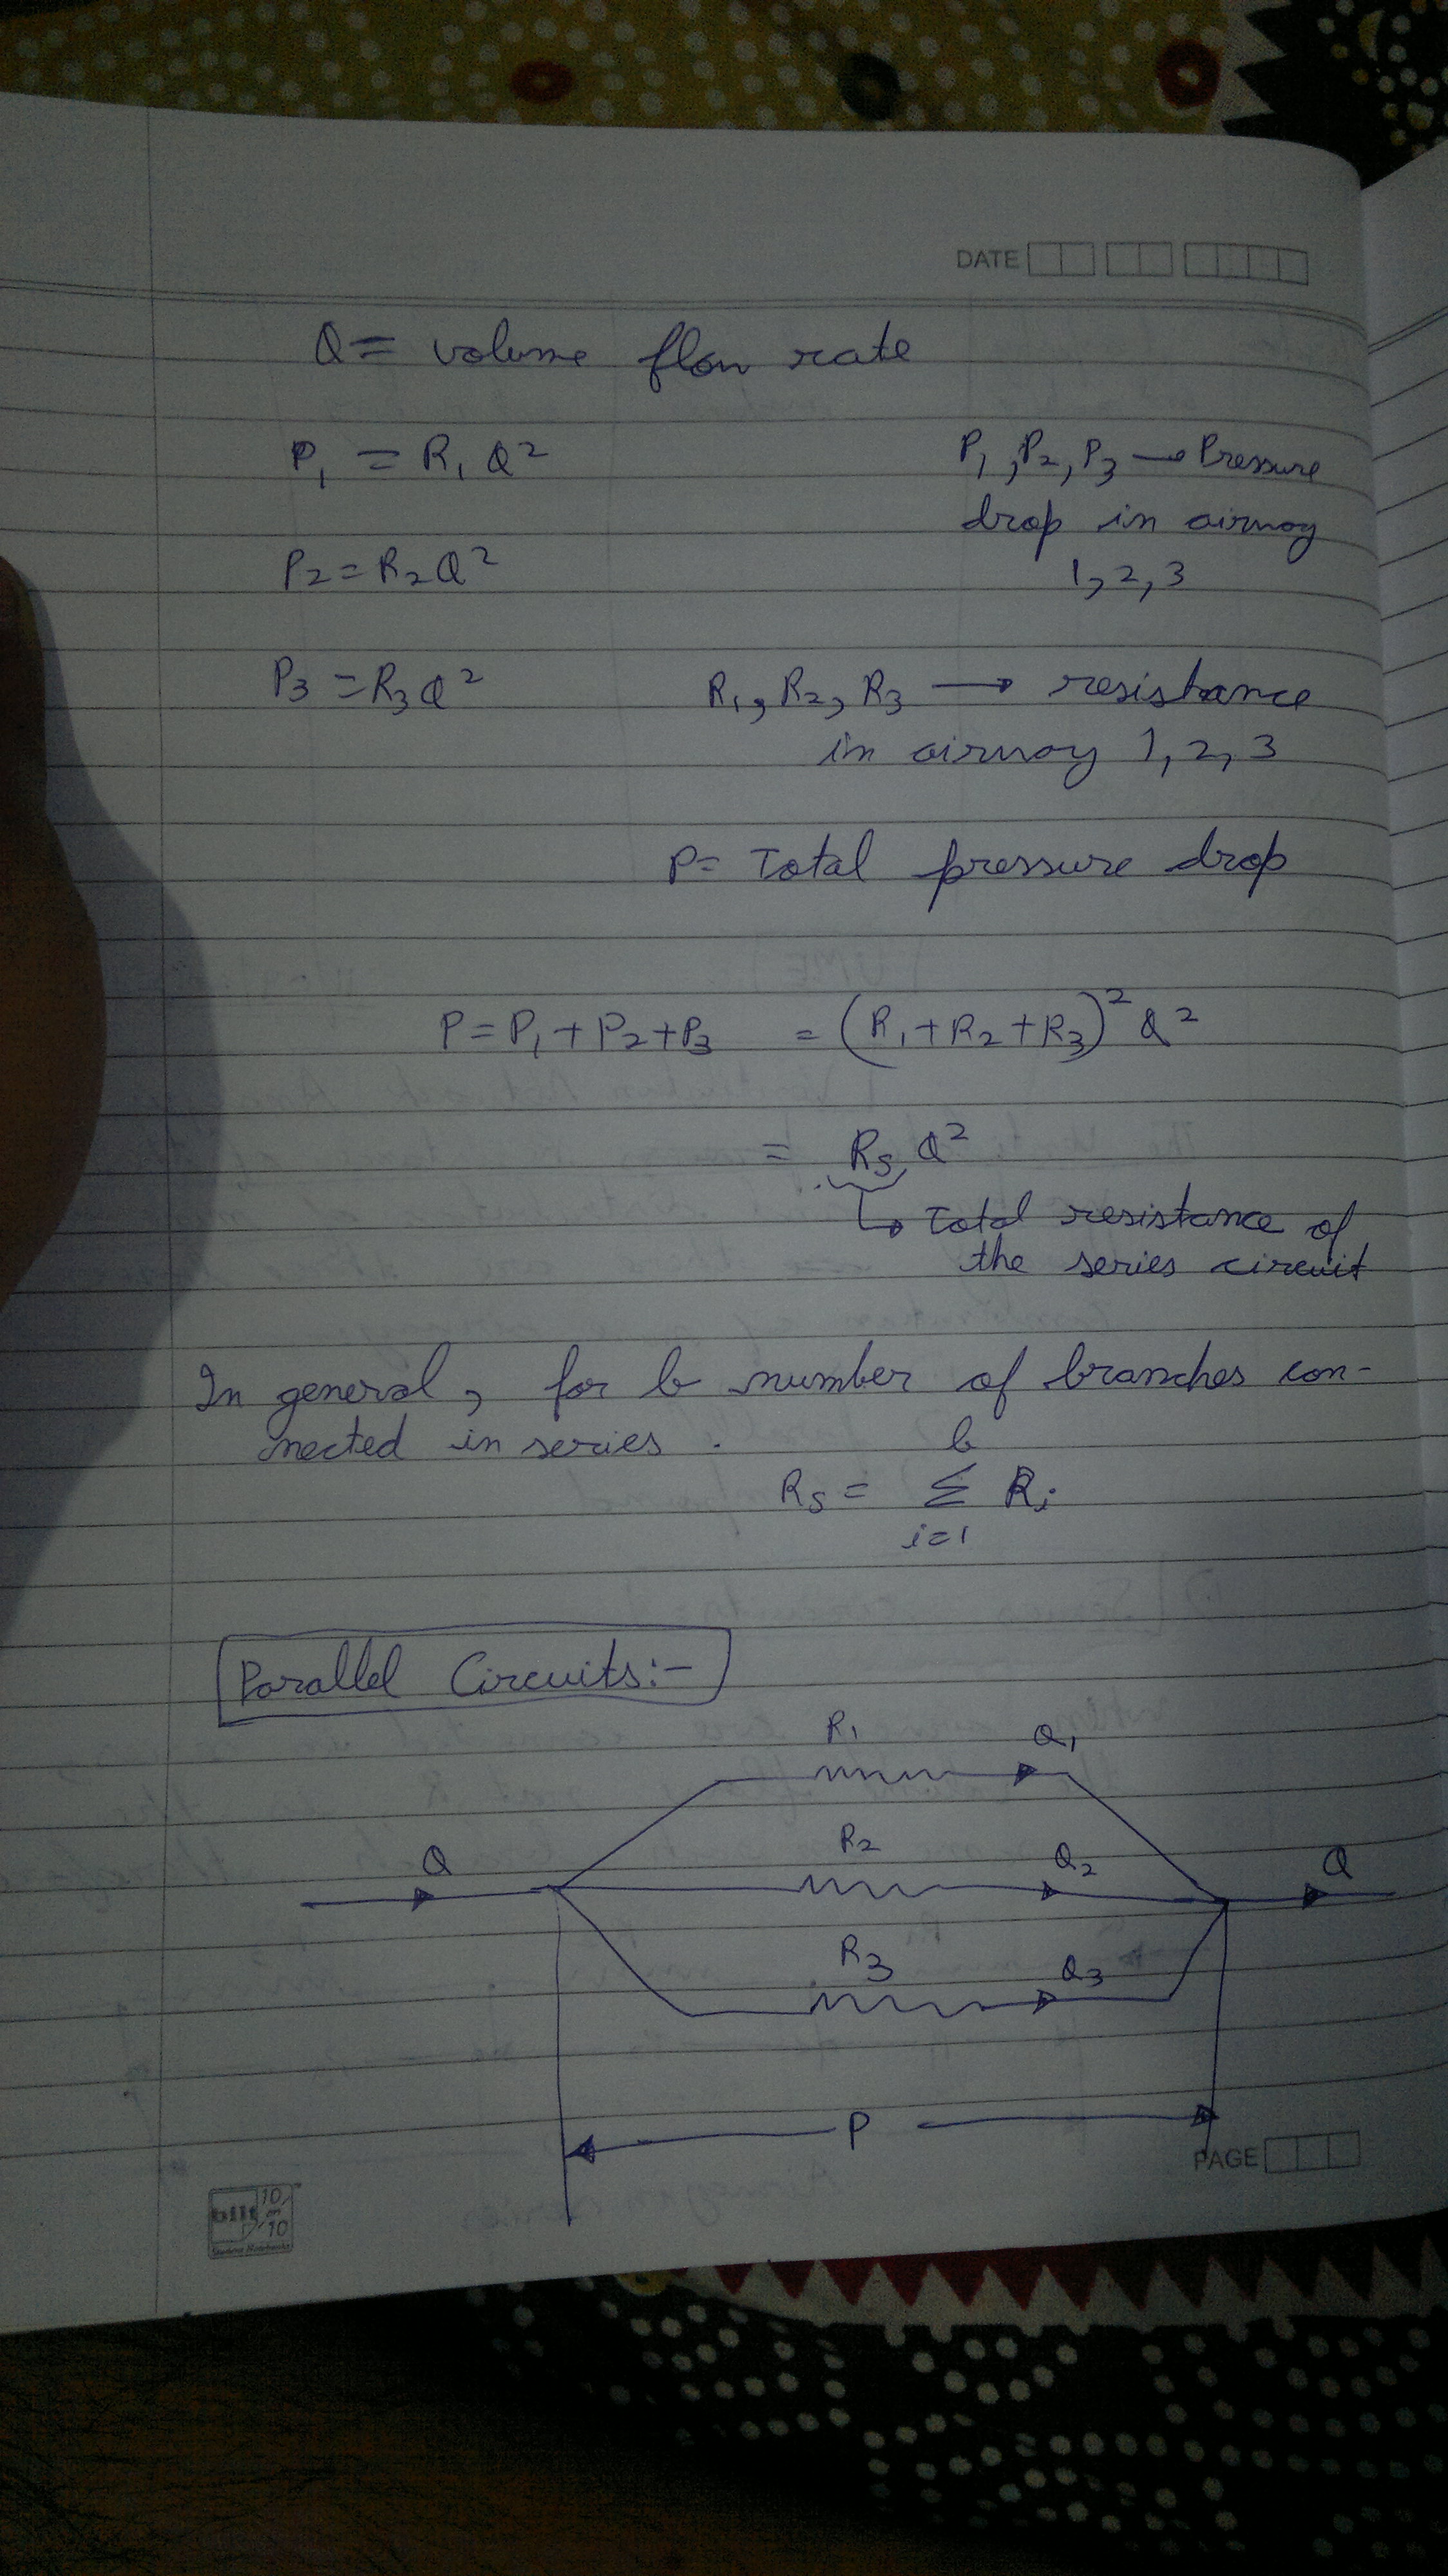 DATE
Q = volume flow rate
P₁ = R₁ Q²
P₁, P₂, P₃ → Pressure
drop in airway
1, 2, 3
P₂ = R₂ Q²
P₃ = R₃ Q²
R₁, R₂, R₃ → resistance
in airway 1, 2, 3
P = Total pressure drop
P = P₁ + P₂ + P₃ = (R₁ + R₂ + R₃)² Q²
= Rs Q²
↳ Total resistance of
the series circuit
In general, for b number of branches con-
nected in series .
b
Rs = Σ Ri
i=1
Parallel Circuits:-
R₁ Q₁
R₂ Q₂
Q Q
R₃ Q₃
P
PAGE
bilt 10 on 10